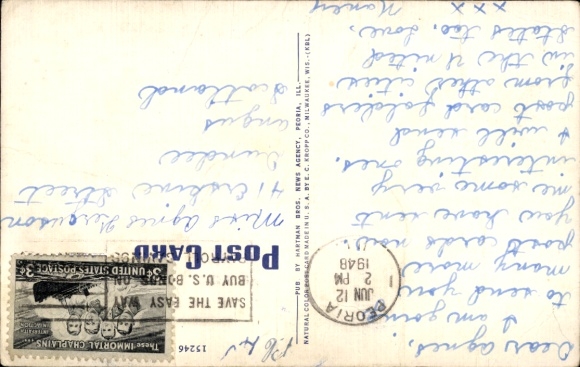 Dear Agnes,
I am going
to send you
many more
post cards now.
you have sent
me some very
interesting ones.
I will send
post card folders
from other cities
in the United
States too. Love,
Nancy
x x x
PEORIA
JUN 12
2 PM
1948
1
PUB. BY HARTMAN BROS. NEWS AGENCY, PEORIA, ILL.
NATURAL COLOR POST CARD MADE IN U. S. A. BY E. C. KROPP CO., MILWAUKEE, WIS.-(KBL)
15246
POST CARD
SAVE THE EASY WAY
BUY U. S. BONDS ON
These IMMORTAL CHAPLAINS ...
INTERFAITH
IN ACTION
3¢ UNITED STATES POSTAGE 3¢
Miss Agnes Ferguson
41 Erskine Street
Dundee
Angus
Scotland